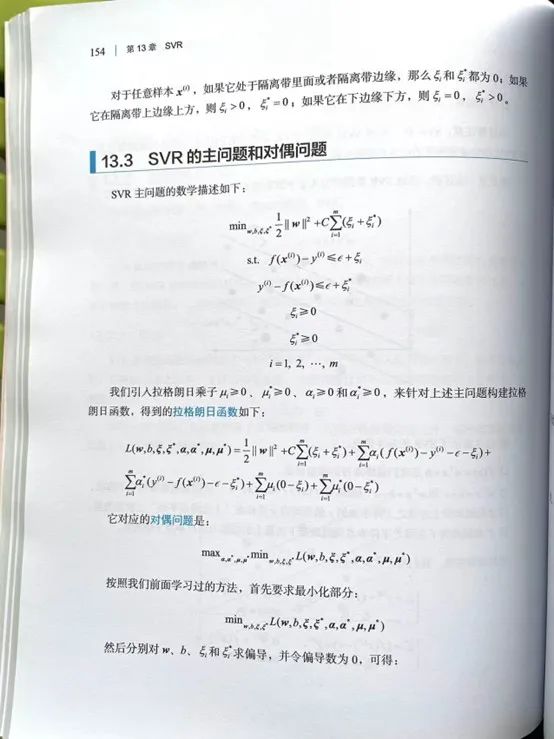 154 | 第 13 章 SVR
对于任意样本 x⁽ⁱ⁾，如果它处于隔离带里面或者隔离带边缘，那么 ξᵢ 和 ξᵢ* 都为 0；如果
它在隔离带上边缘上方，则 ξᵢ>0，ξᵢ*=0；如果它在下边缘下方，则 ξᵢ=0，ξᵢ*>0。
13.3 SVR 的主问题和对偶问题
SVR 主问题的数学描述如下：
min_{w,b,ξ,ξ*} 1/2 ||w||² + C∑_{i=1}^{m}(ξᵢ+ξᵢ*)
s.t. f(x⁽ⁱ⁾)−y⁽ⁱ⁾≤ϵ+ξᵢ
y⁽ⁱ⁾−f(x⁽ⁱ⁾)≤ϵ+ξᵢ*
ξᵢ≥0
ξᵢ*≥0
i=1, 2, ⋯, m
我们引入拉格朗日乘子 μᵢ≥0、μᵢ*≥0、αᵢ≥0 和 αᵢ*≥0，来针对上述主问题构建拉格
朗日函数，得到的拉格朗日函数如下：
L(w,b,ξ,ξ*,α,α*,μ,μ*)=1/2 ||w||²+C∑_{i=1}^{m}(ξᵢ+ξᵢ*)+∑_{i=1}^{m}αᵢ(f(x⁽ⁱ⁾)−y⁽ⁱ⁾−ϵ−ξᵢ)+
∑_{i=1}^{m}αᵢ*(y⁽ⁱ⁾−f(x⁽ⁱ⁾)−ϵ−ξᵢ*)+∑_{i=1}^{m}μᵢ(0−ξᵢ)+∑_{i=1}^{m}μᵢ*(0−ξᵢ*)
它对应的对偶问题是：
max_{α,α*,μ,μ*}min_{w,b,ξ,ξ*}L(w,b,ξ,ξ*,α,α*,μ,μ*)
按照我们前面学习过的方法，首先要求最小化部分：
min_{w,b,ξ,ξ*}L(w,b,ξ,ξ*,α,α*,μ,μ*)
然后分别对 w、b、ξᵢ 和 ξᵢ* 求偏导，并令偏导数为 0，可得：